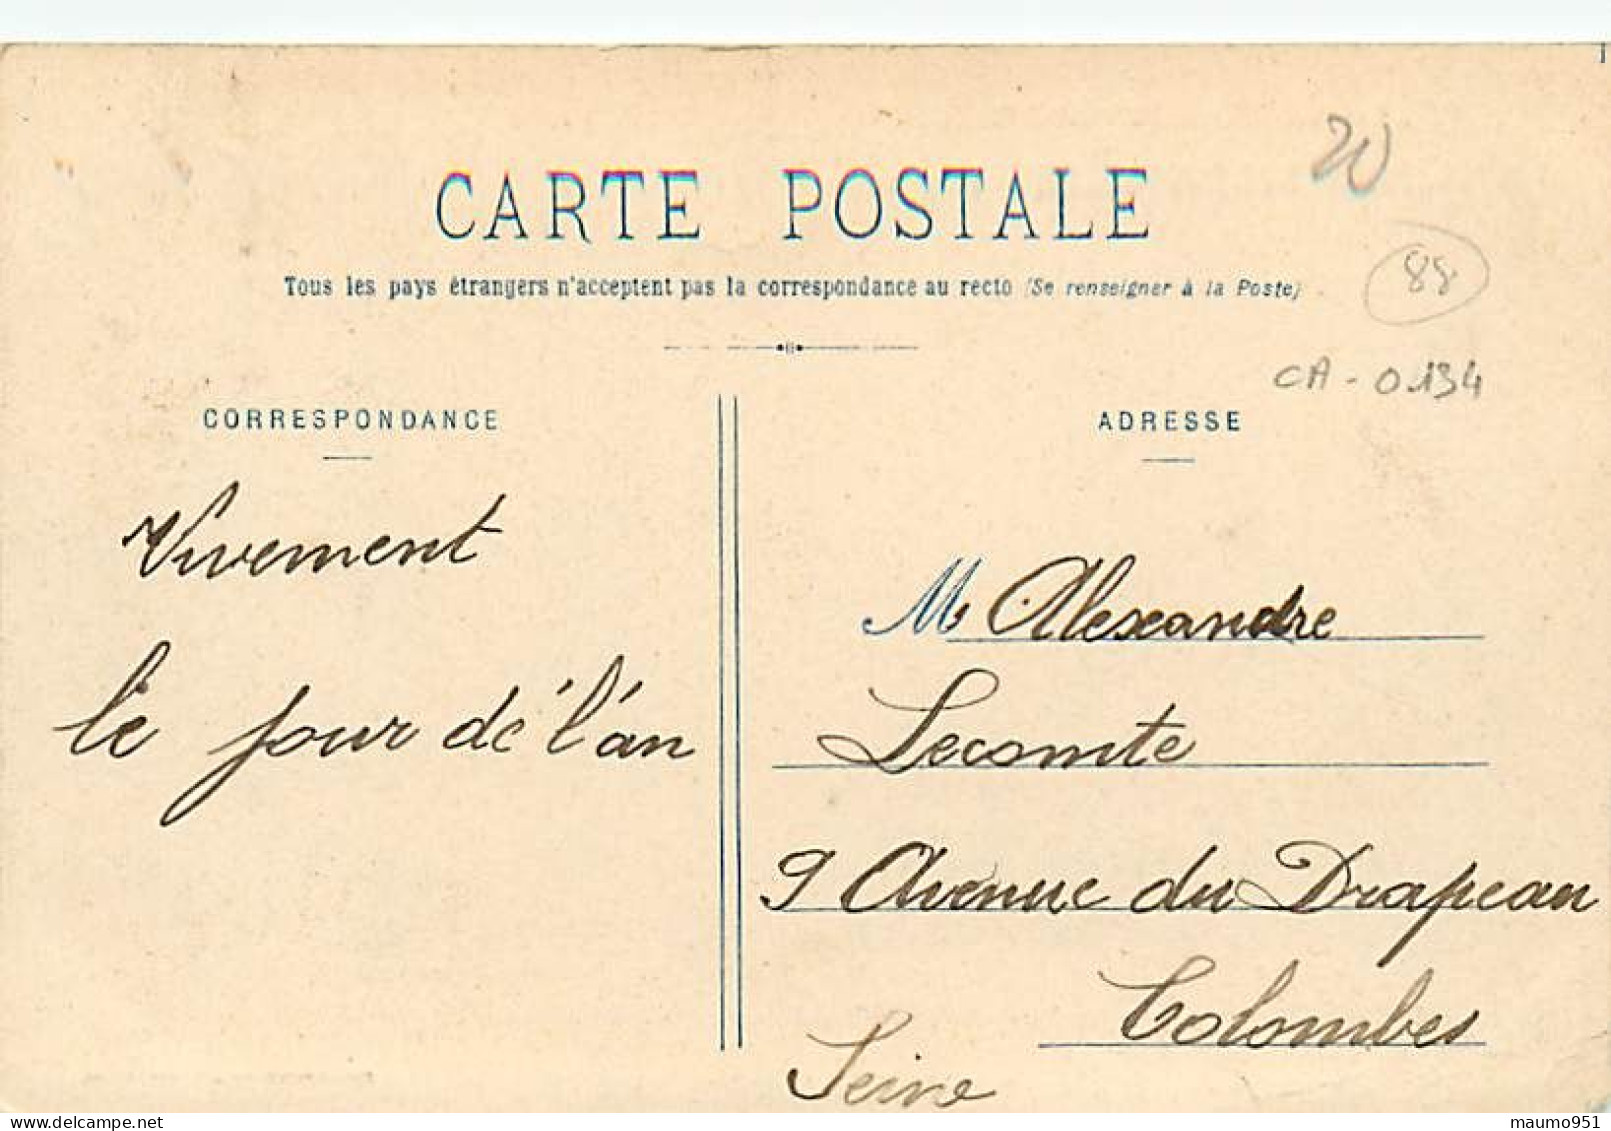 20
CARTE POSTALE
88
Tous les pays étrangers n'acceptent pas la correspondance au recto (Se renseigner à la Poste)
CA-0.134
CORRESPONDANCE
ADRESSE
Vivement
le jour de l'an
M Alexandre
Lecomte
9 Avenue du Drapeau
Colombes
Seine
maumo951